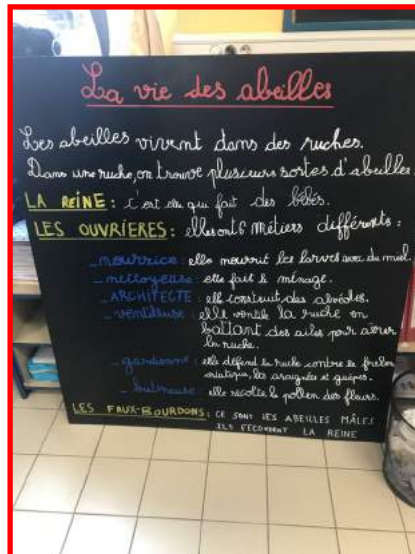 La vie des abeilles
Les abeilles vivent dans des ruches.
Dans une ruche, on trouve plusieurs sortes d'abeilles.
LA REINE : c'est elle qui fait des bébés.
LES OUVRIERES : elles ont 6 métiers différents :
_ nourrice : elle nourrit les larves avec du miel.
_ nettoyeuse : elle fait le ménage.
_ ARCHITECTE : elle construit des alvéoles.
_ ventileuse : elle ventile la ruche en
battant des ailes pour aérer
la ruche.
_ gardienne : elle défend la ruche contre le frelon
asiatique, les araignées et guêpes.
_ butineuse : elle récolte le pollen des fleurs.
LES FAUX-BOURDONS : CE SONT LES ABEILLES MÂLES
ILS FÉCONDENT LA REINE